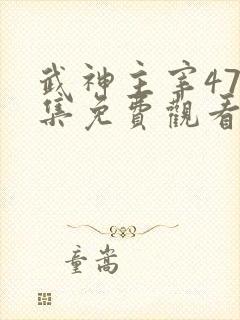 武神主宰47
集免費觀看
童嵩